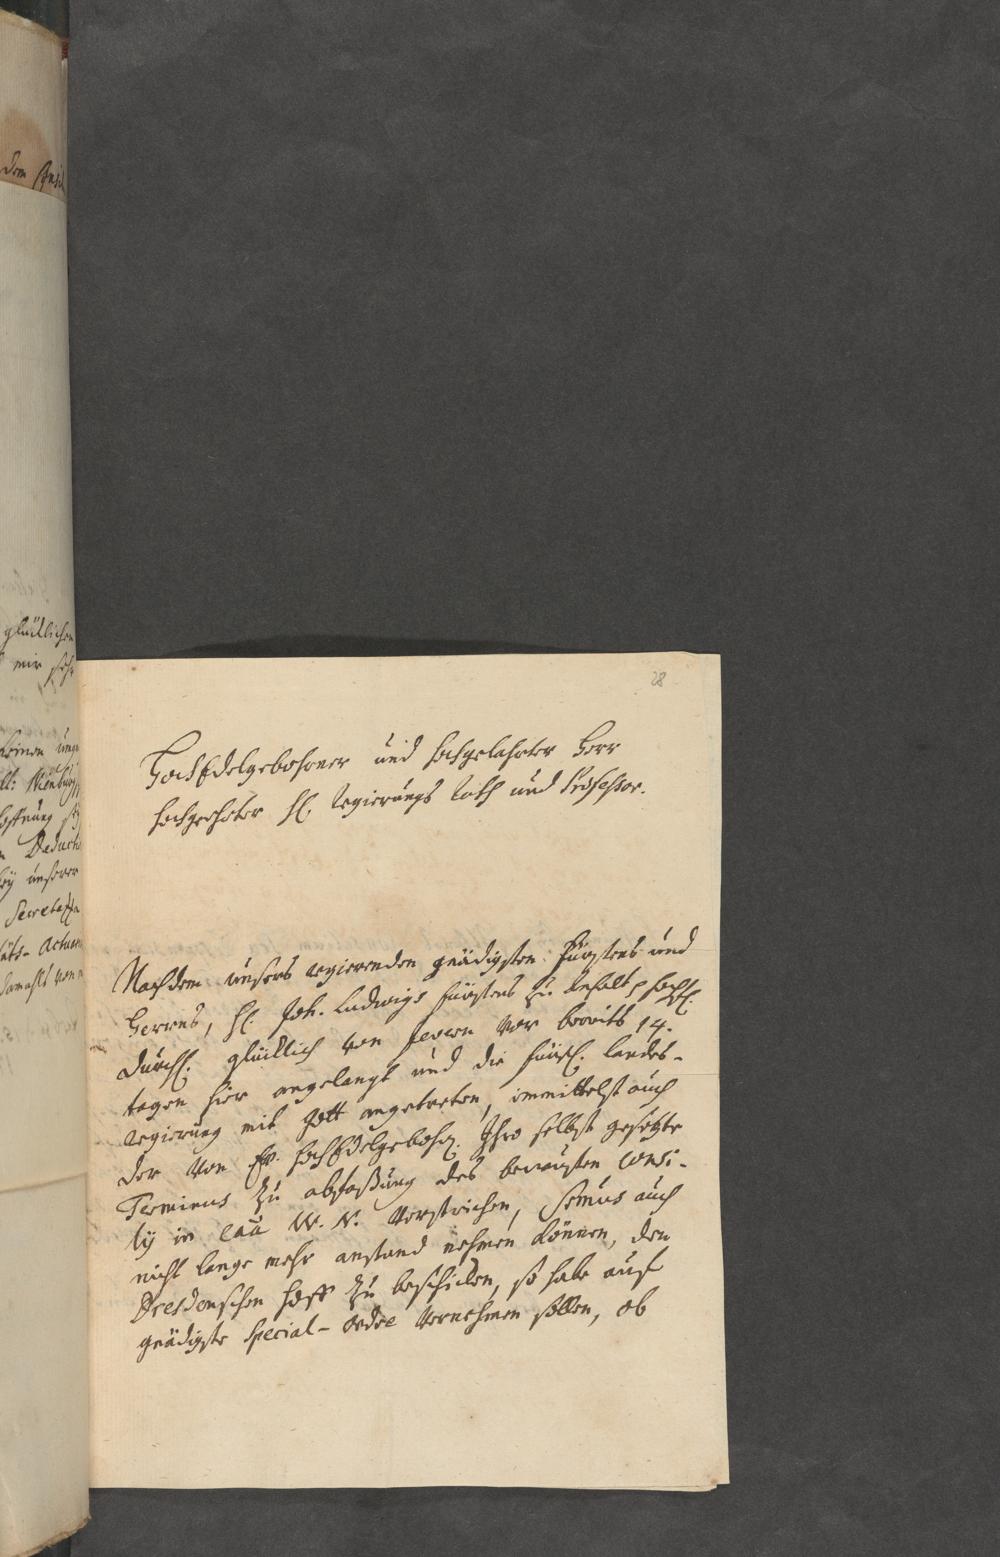 28
HochEdelgebohrner und hochgelahrter Herr
hochgeehrter H. Regierungs Rath und Professor.
Nachdem unsers regierenden gnädigsten Fürstens und
Herrns, H. Joh. Ludwigs Fürstens zu Anhalt p hochf.
Durchl. glücklich von Jevern vor bereits 14.
tagen hier angelangt und die fürstl. landes-
regierung mit Gott angetreten, immittelst auch
der von Ew. HochEdelgebohr. Ihro selbst gesetzte
Terminus zu abfaßung des bewusten consi-
lij in caâ W. N. verstrichen, Semus auch
nicht lange mehr anstand nehmen können, den
Dresdenschen hoff zu beschicken, so habe auf
gnädigste Special-ordre vernehmen sollen, ob
glücklichen
mir sehr
keinen
hoffnung
bey unserer
damahls von